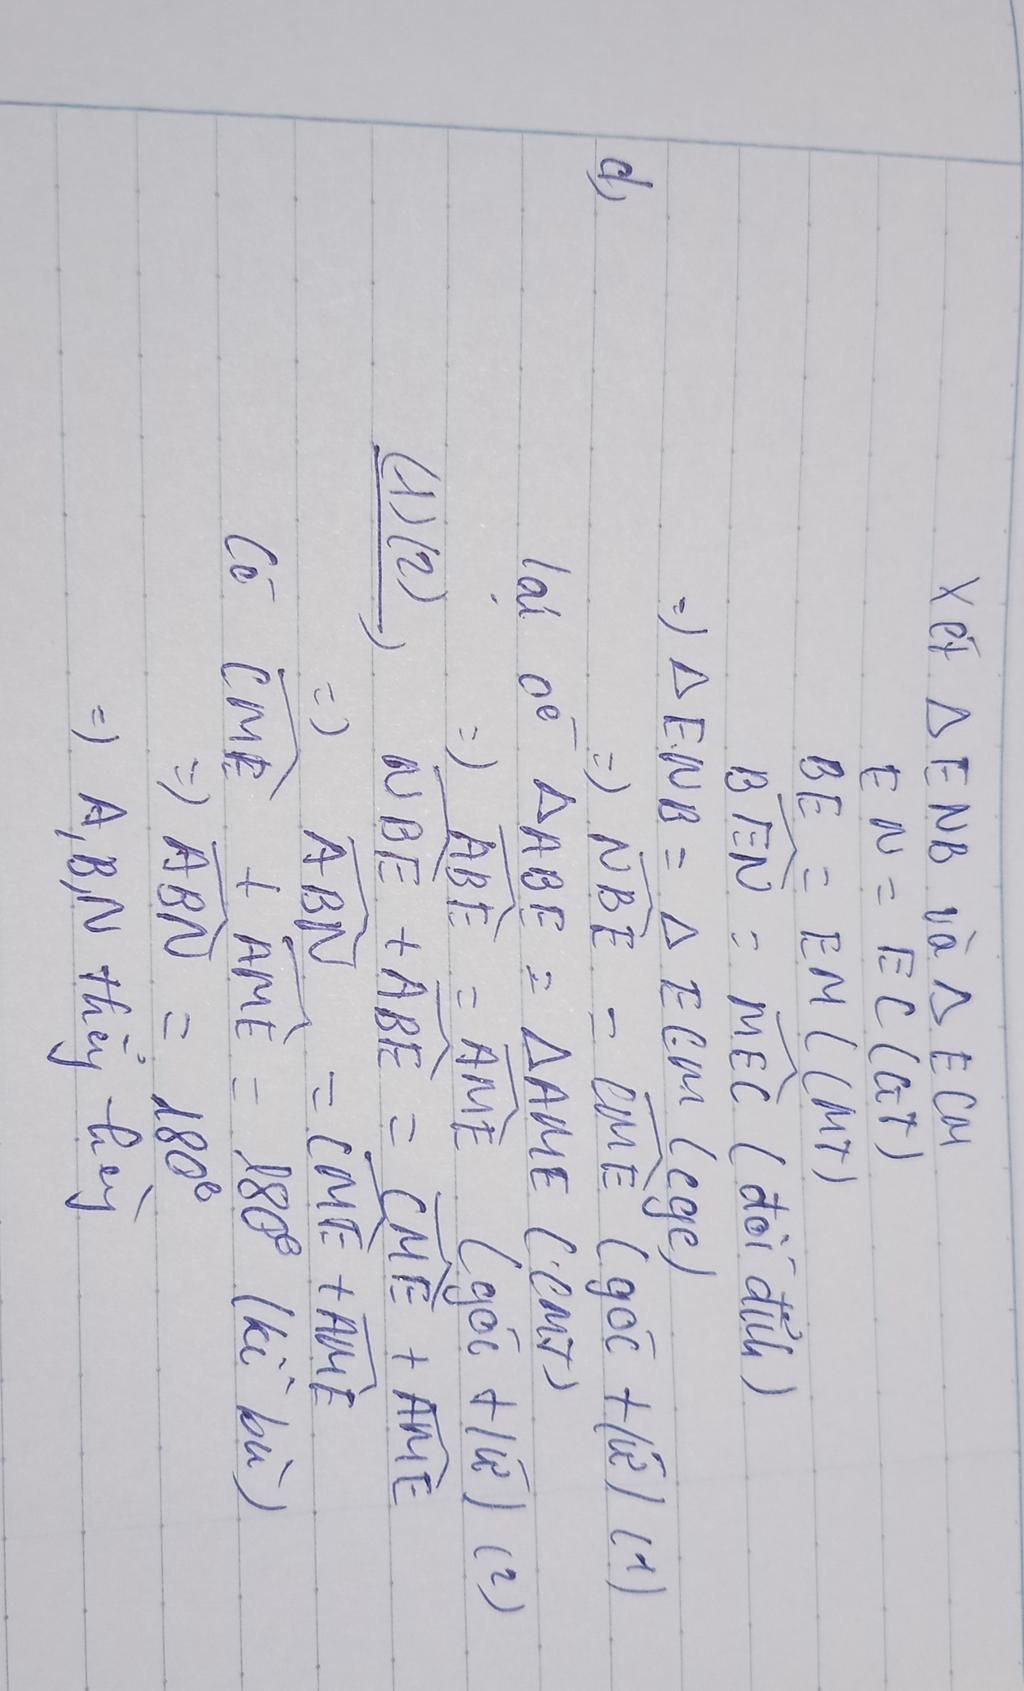 Xét Δ ENB và Δ ECM
EN = EC (GT)
BE = EM (CMT)
BEN = MEC (đối đỉnh)
=) Δ ENB = Δ ECM (cgc)
d) =) NBE = CME (góc t/ứ) (1)
lại có Δ ABE = Δ AME (CMT)
=) ABE = AME (góc t/ứ) (2)
(1)(2) ) NBE + ABE = CME + AME
=) ABN = CME + AME
Có CME + AME = 180° (kề bù)
=) ABN = 180°
=) A,B,N thẳng hàng